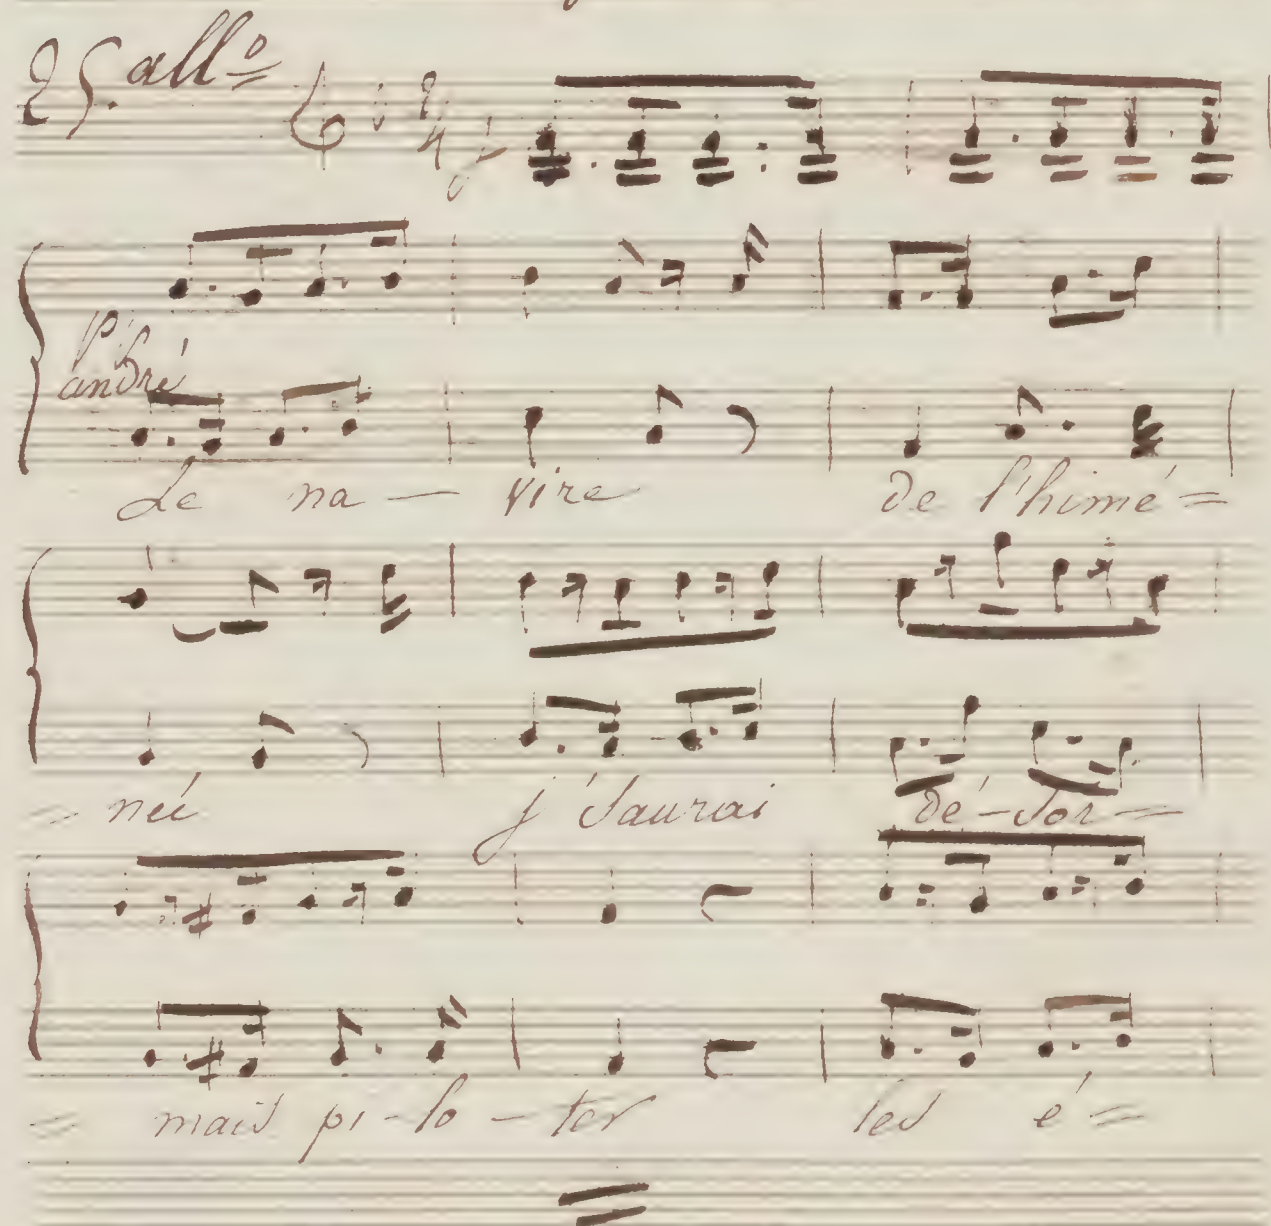 25. all°
2/4 f
Ph
andré
Le na - vire de l'himé =
= née j'saurai dé - sor =
= mais pi - lo - ter les é =